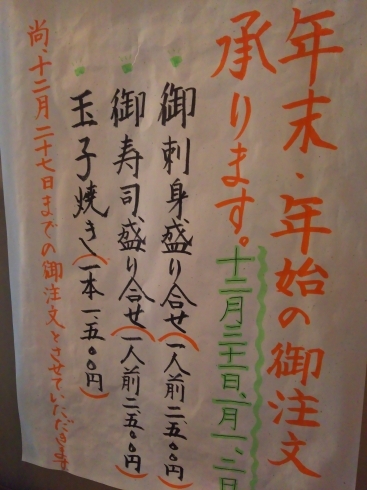 年末・年始の御注文
承ります。十二月三十一日、一月一、二日
御刺身盛り合せ(一人前二、五〇〇円)
御寿司盛り合せ(一人前二、五〇〇円)
玉子焼き(一本一、五〇〇円)
尚、十二月二十七日までの御注文とさせていただきます